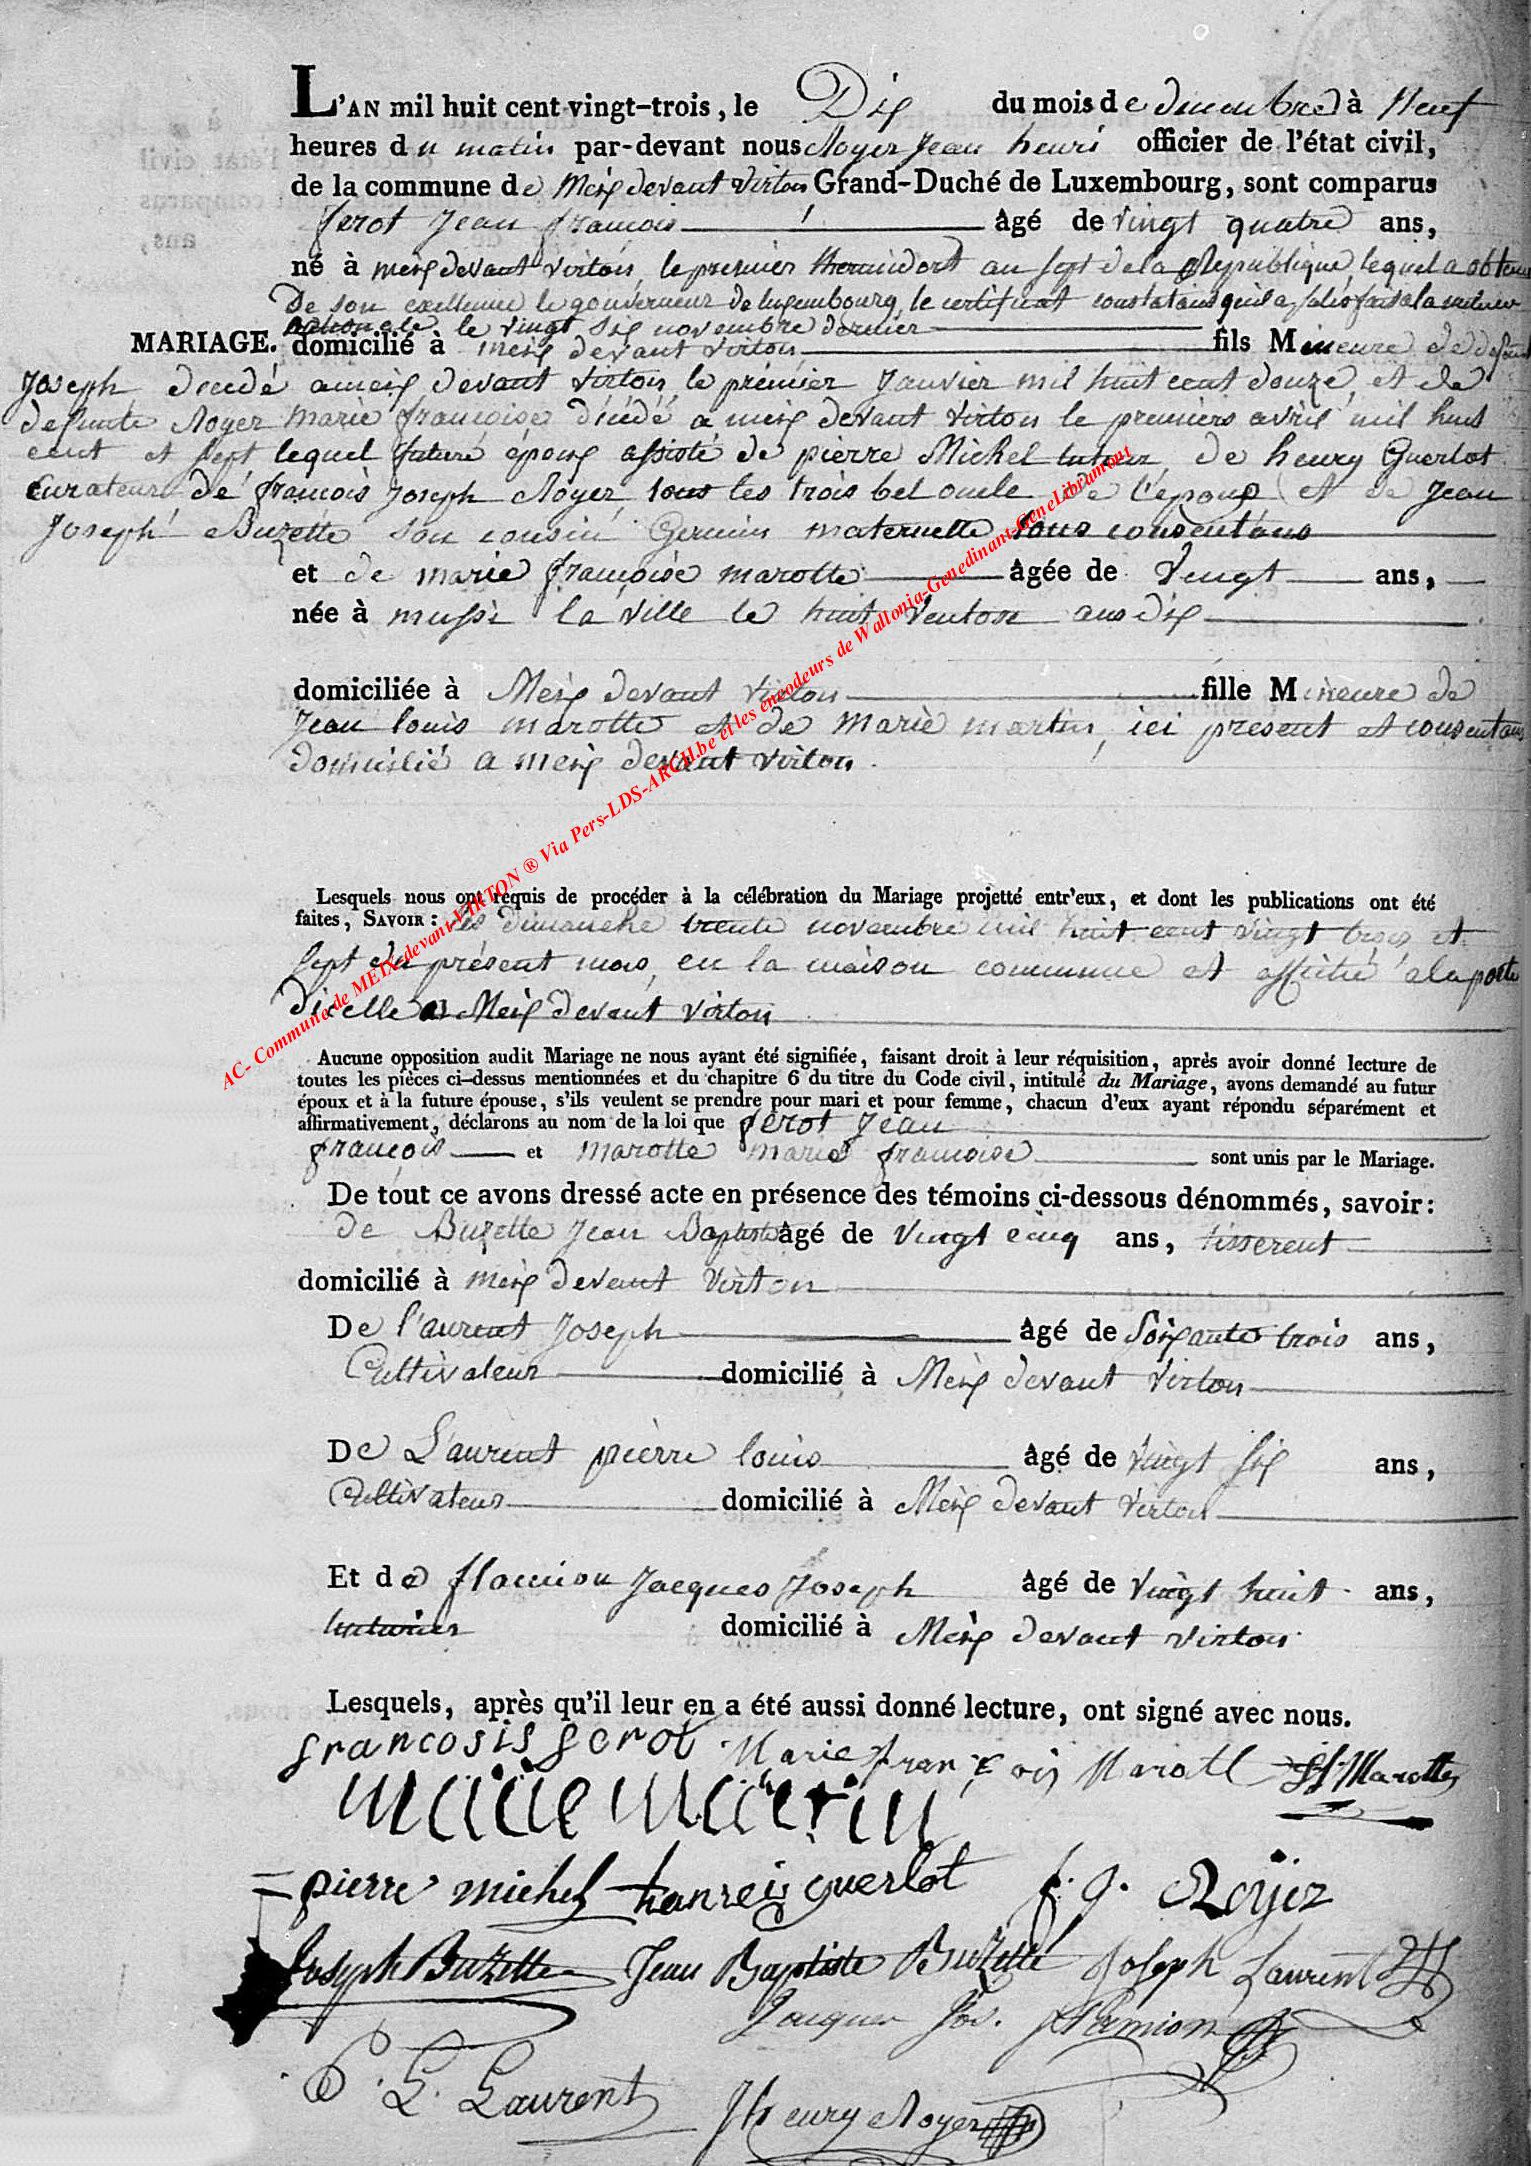 L'AN mil huit cent vingt-trois, le Dix du mois de decembre à Neuf
heures du matin par-devant nous Royer Jean henri officier de l'état civil,
de la commune de Meix devant virton Grand-Duché de Luxembourg, sont comparus
ferot Jean françois âgé de Vingt quatre ans,
né à meix devant virton, le premier thermidort an sept de la Republique, lequel a obtenu
De son exellence le gouverneur de luxembourg, le certificat constatant qu'il a satisfait a la milice
nationale le vingt six novembre dernier
MARIAGE. domicilié à meix devant virton fils Mineure de defunt
Joseph decédé a meix devant virton le premier Janvier mil huit cent douze, et de
defunte Royer Marie françoise décédé a meix devant virton le premiers avril mil huit
cent et sept lequel futuré époux assisté de pierre Michel tuteur, de henry Guerlot
Curateur de françois Joseph Royer tous les trois bel oncle de l'epoux et de Jean
Joseph Buzette son cousin Germin maternelle tous consentans
et de marie françoise marotte âgée de Vingt ans,
née à mussi la ville le huit Ventose ans dix
domiciliée à Meix devant virton fille Mineure de
Jean louis marotte et de Marie martin, ici present et consentans
domicilié a meix devant virton.
Lesquels nous ont requis de procéder à la célébration du Mariage projetté entr'eux, et dont les publications ont été
faites, SAVOIR : les dimanche trente novembre mil huit cent vingt trois et
sept du présent mois, en la maison commune et affiché a la porte
dicelle a Meix devant virton
Aucune opposition audit Mariage ne nous ayant été signifiée, faisant droit à leur réquisition, après avoir donné lecture de
toutes les pièces ci-dessus mentionnées et du chapitre 6 du titre du Code civil, intitulé du Mariage, avons demandé au futur
époux et à la future épouse, s'ils veulent se prendre pour mari et pour femme, chacun d'eux ayant répondu séparément et
affirmativement, déclarons au nom de la loi que ferot Jean
françois et marotte marie françoise sont unis par le Mariage.
De tout ce avons dressé acte en présence des témoins ci-dessous dénommés, savoir:
de Buzette Jean Baptiste âgé de Vingt cinq ans, tisserent
domicilié à meix devant Virton
De l'aurent Joseph âgé de Soixante trois ans,
Cultivateur domicilié à Meix devant virton
De L'aurent pièrre louis âgé de Vingt six ans,
Cultivateur domicilié à Meix devant virton
Et de flamion Jacques Joseph âgé de Vingt huit ans,
domicilié à Meix devant virton
Lesquels, après qu'il leur en a été aussi donné lecture, ont signé avec nous.
francosis ferot Marie franxois Marott JL Marotte
marie martin
pierre michel hanrei guerlot f. g. Royer
Joseph Buzette Jean Baptiste Buzette Joseph Laurent
Jacques Jos. flamion
P. L. Laurent JHenry Royer
AC- Commune de MEIX-devant-VIRTON ® Via Pers-LDS-ARCH.be et les encodeurs de Wallonia-Genedinant-GeneLibramont